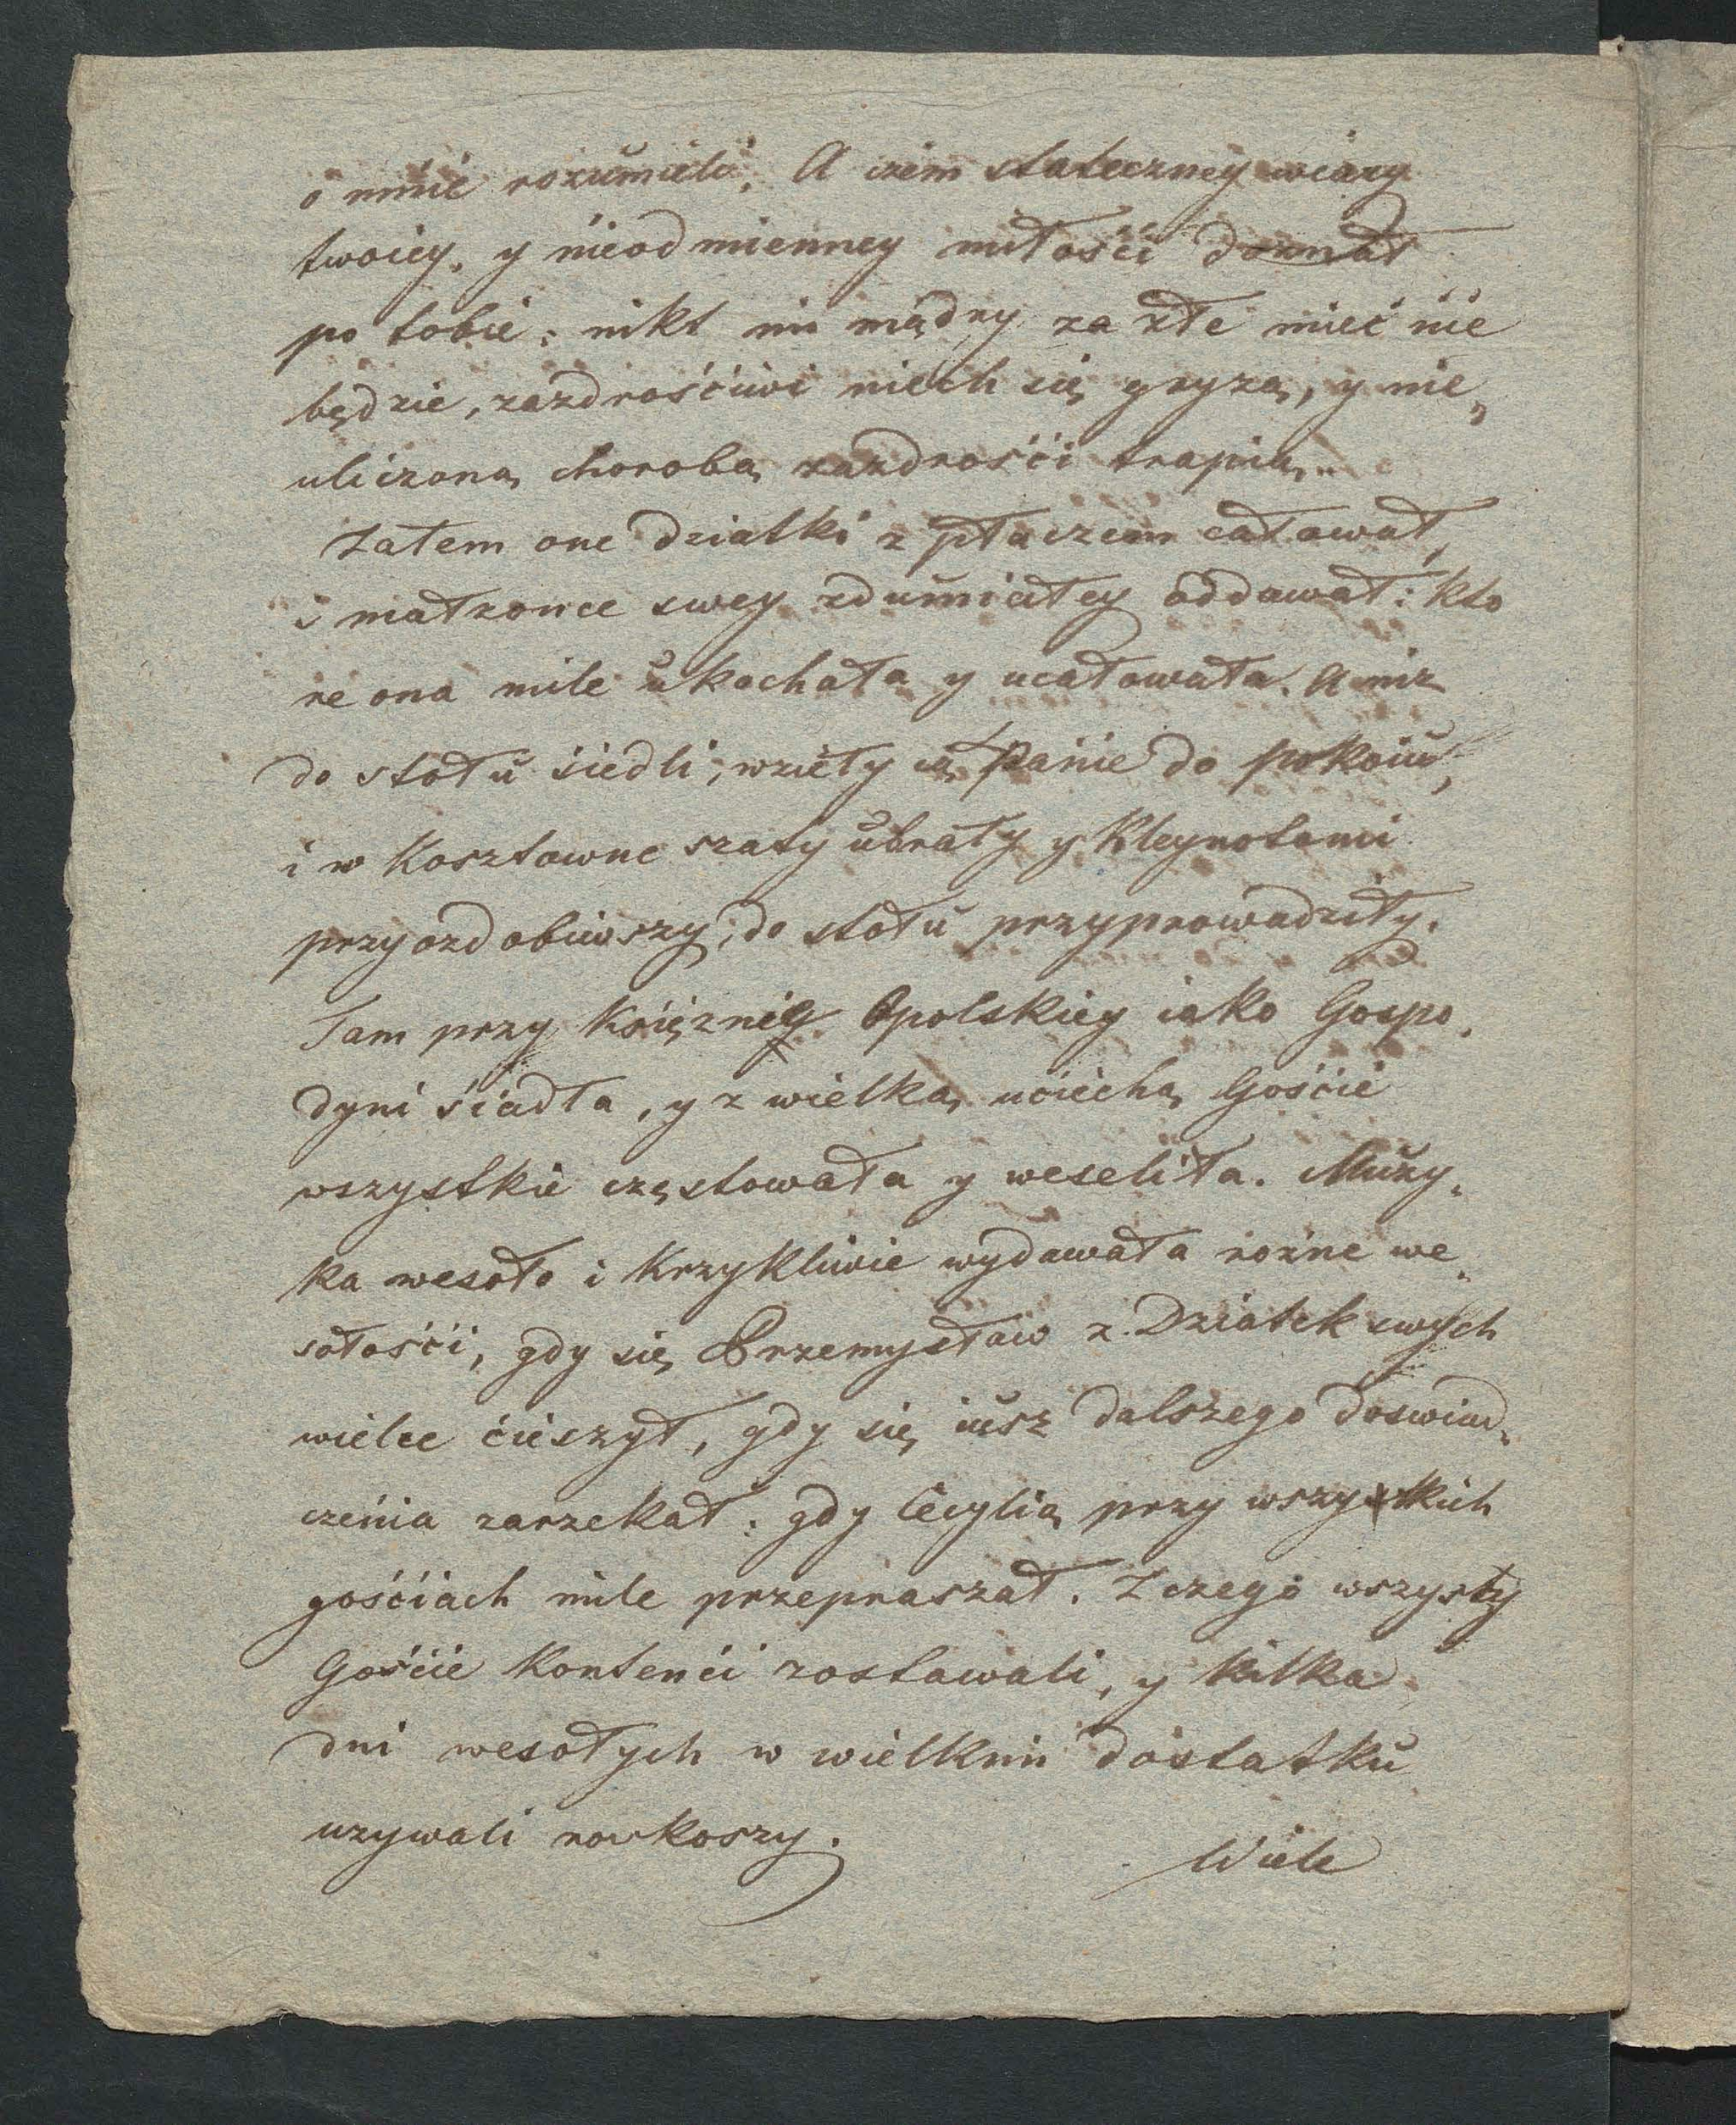 o mnie rozumieli. A czem stateczney wiary
twoiey, y nieodmienney miłości doznał
po tobie: nikt mi mądry za złe mieć nie
będzie, zazdrośćiwi niech się gryzą, y nie„
uliczoną chorobą zazdrośći trapią..
Zatem one dziatki z płaczem całował,
i małzonce swey zdumiałey oddawał: kto
re ona mile ukochała y ucałowała. A niz
do stołu siedli, wzieły ią Panie do pokoiu,
i w kosztowne szaty ubrały y kleynotami
przyozdobiwszy, do stołu przyprowadziły.
Tam przy Księzniey Opolskiey iako Gospo„
dyni śiadła, y z wielką uciechą Gośćie
wszystkie częstowała y weseliła. Muzy„
ka wesoło i krzykliwie wydawała rozne we„
sołośći, gdy się Przemysław z Dziatek swych
wielce ćieszył, gdy się iusz dalszego doswiad„
czenia zarzekał: gdy Cecylią przy wszystkich
gośćiach mile przepraszał. Z czego wszyscy
Gośćie kontenći zostawali, y kilka
dni wesołych w wielkim dostatku
uzywali roskoszy.
Wiele